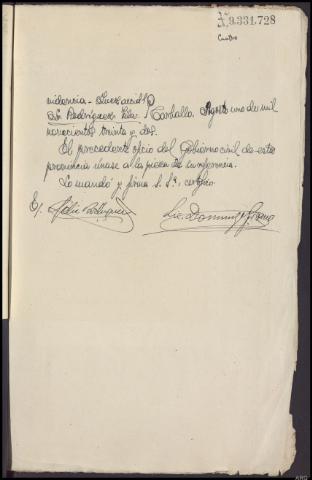 9.331.728
Cuatro
videncia.- Instrucción
Sr. Rodríguez - Carballo. Agosto uno de mil
novecientos treinta y dos.
El precedente oficio del Gobierno civil de esta
provincia únase a la pieza de su referencia.
Lo mandó y firma S.Sª; certifico.
E/.
Lic. Domingo
ARG